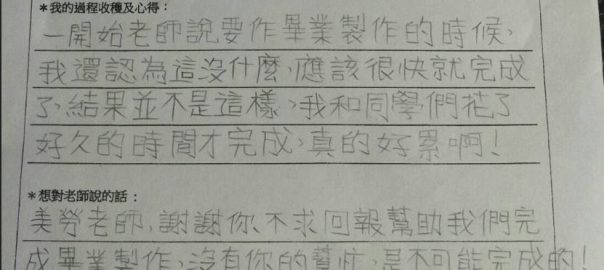 *我的過程收穫及心得：
一開始老師說要作畢業製作的時候，
我還認為這沒什麼，應該很快就完成
了，結果並不是這樣，我和同學們花了
好久的時間才完成，真的好累啊！
*想對老師說的話：
美勞老師，謝謝你不求回報幫助我們完
成畢業製作，沒有你的幫忙，是不可能完成的！